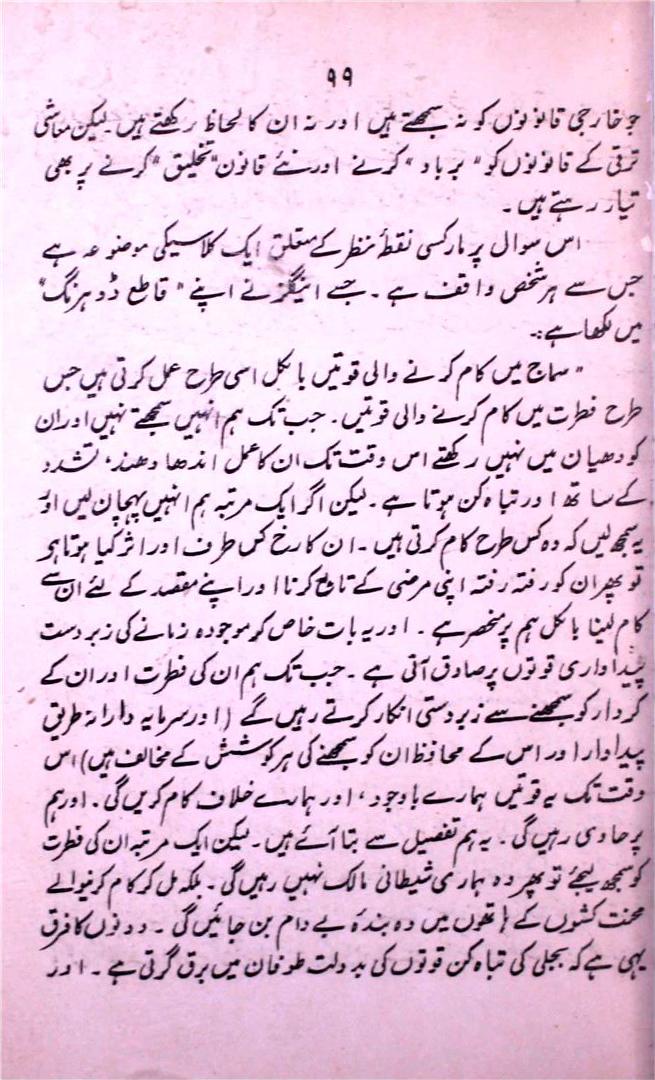 ۹۹
جو خارجی قانونوں کو نہ سمجھتے ہیں اور نہ ان کا لحاظ رکھتے ہیں۔ لیکن معاشی
ترقی کے قانونوں کو "برباد" کرنے اور نئے قانون "تخلیق" کرنے پر بھی
تیار رہتے ہیں۔
اس سوال پر مارکسی نقطۂ نظر کے متعلق ایک کلاسیکی موضوعہ ہے
جس سے ہر شخص واقف ہے۔ جسے اینگلز نے اپنے "قاطع ڈوہرنگ"
میں لکھا ہے:۔
"سماج میں کام کرنے والی قوتیں بالکل اسی طرح عمل کرتی ہیں جس
طرح فطرت میں کام کرنے والی قوتیں۔ جب تک ہم انہیں سمجھتے نہیں اور ان
کو دھیان میں نہیں رکھتے اس وقت تک ان کا عمل اندھا دھند، تشدد
کے ساتھ اور تباہ کن ہوتا ہے۔ لیکن اگر ایک مرتبہ ہم انہیں پہچان لیں اور
یہ سمجھ لیں کہ وہ کس طرح کام کرتی ہیں۔ ان کا رخ کس طرف اور اثر کیا ہوتا ہے
تو پھر ان کو رفتہ رفتہ اپنی مرضی کے تابع کرنا اور اپنے مقصد کے لئے ان سے
کام لینا بالکل ہم پر منحصر ہے۔ اور یہ بات خاص کر موجودہ زمانے کی زبردست
پیداواری قوتوں پر صادق آتی ہے۔ جب تک ہم ان کی فطرت اور ان کے
کردار کو سمجھنے سے زبردستی انکار کرتے رہیں گے (اور سرمایہ دارانہ طریق
پیداوار اور اس کے محافظ ان کو سمجھنے کی ہر کوشش کے مخالف ہیں) اس
وقت تک یہ قوتیں ہمارے باوجود، اور ہمارے خلاف کام کریں گی۔ اور ہم
پر حاوی رہیں گی۔ یہ ہم تفصیل سے بتا آئے ہیں۔ لیکن ایک مرتبہ ان کی فطرت
کو سمجھ لیجئے تو پھر وہ ہماری شیطانی مالک نہیں رہیں گی۔ بلکہ مل کر کام کرنیوالے
محنت کشوں کے ہاتھوں میں وہ بندۂ بے دام بن جائیں گی۔ دونوں کا فرق
یہی ہے کہ بجلی کی تباہ کن قوتوں کی بدولت طوفان میں برق گرتی ہے۔ اور